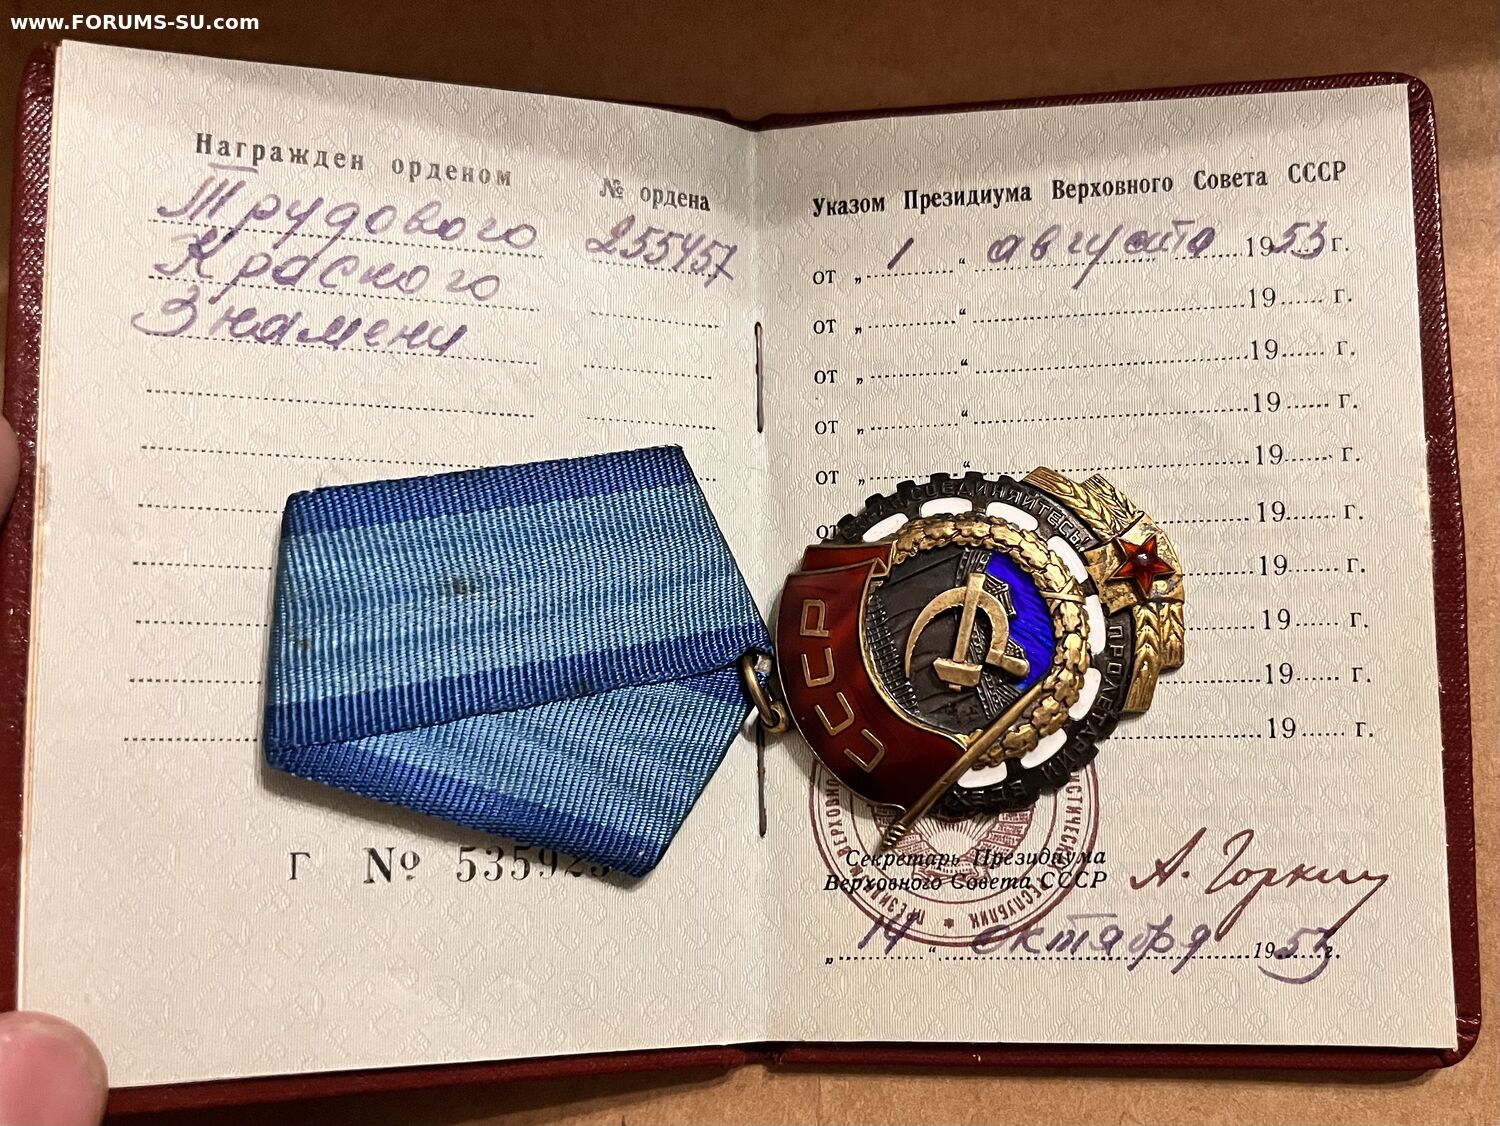 www.FORUMS-SU.com
Награжден орденом
№ ордена
Трудового
255457
Красного
Знамени
Г № 53592
Указом Президиума Верховного Совета СССР
от „ 1 “ августа 1953 г.
от „ “ 19 г.
от „ “ 19 г.
от „ “ 19 г.
от „ “ 19 г.
от 19 г.
19 г.
19 г.
19 г.
19 г.
СОЕДИНЯЙТЕСЬ!
ПРОЛЕТАРИИ
ВСЕХ
СССР
Секретарь Президиума
Верховного Совета СССР
А. Горкин
„ 14 “ октября 1953 г.